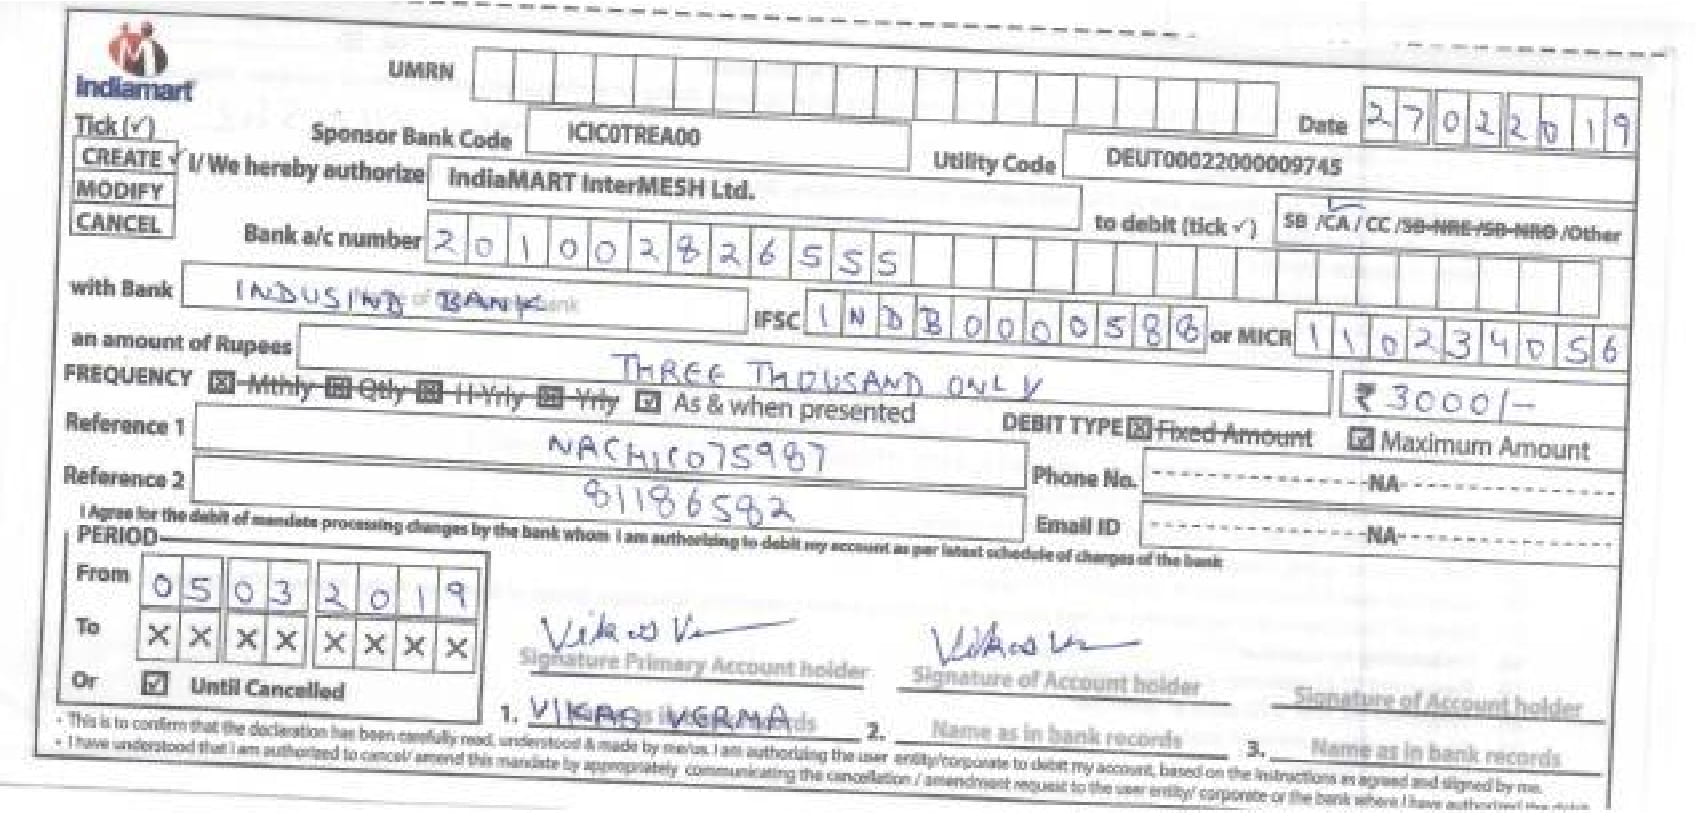 indiamart
UMRN
Date 27022019
Tick (✓)
Sponsor Bank Code ICIC0TREA00 Utility Code DEUT00022000009745
CREATE ✓ I/ We hereby authorize IndiaMART InterMESH Ltd. to debit (tick ✓) SB /CA / CC /SB-NRE/SB-NRO /Other
MODIFY
CANCEL
Bank a/c number 201002826555
with Bank INDUSIND BANK IFSC INDB0000588 or MICR 110234056
an amount of Rupees THREE THOUSAND ONLY ₹ 3000/-
FREQUENCY ☒ Mthly ☒ Qtly ☒ H-Yrly ☒ Yrly ☑ As & when presented DEBIT TYPE ☒ Fixed Amount ☑ Maximum Amount
Reference 1 NACHICO75987 Phone No. NA
Reference 2 81186582 Email ID NA
I Agree for the debit of mandate processing charges by the bank whom I am authorizing to debit my account as per latest schedule of charges of the bank
PERIOD
From 05032019
To XXXXXXXX
Or ☑ Until Cancelled
Signature Primary Account holder Signature of Account holder Signature of Account holder
1. VIKAS VERMA 2. Name as in bank records 3. Name as in bank records
- This is to confirm that the declaration has been carefully read, understood & made by me/us. I am authorizing the user entity/corporate to debit my account, based on the instructions as agreed and signed by me.
- I have understood that I am authorized to cancel/ amend this mandate by appropriately communicating the cancellation / amendment request to the user entity/ corporate or the bank where I have authorized the debit